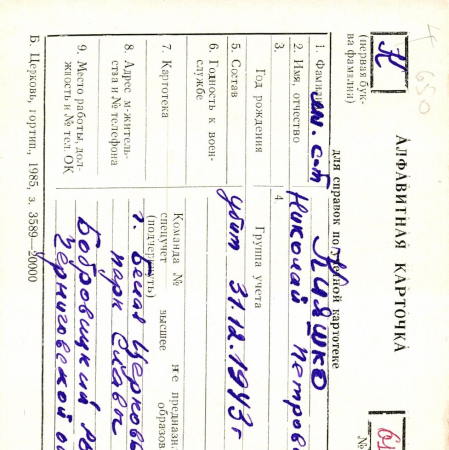 АЛФАВИТНАЯ КАРТОЧКА
для справок по учетной картотеке
(первая бук-
ва фамилии)
К
4650
1. Фамилия
мл. с-т
Кияшко
2. Имя, отчество
Николай Петров
3.
Год рождения
4.
Группа учета
5. Состав
убит 31.12.1943 г
6. Годность к воен-
службе
7. Картотека
Команда №
спецучет
(подчеркнуть)
высшее
не предназна
образов
8. Адрес м-житель-
ства и № телефона
г. Белая Церковь
парк Славы
9. Место работы, дол-
жность и № тел. ОК
Бобровицкий р
Черниговской о
Б. Церковь, гортип., 1985, з. 3589—20000
№